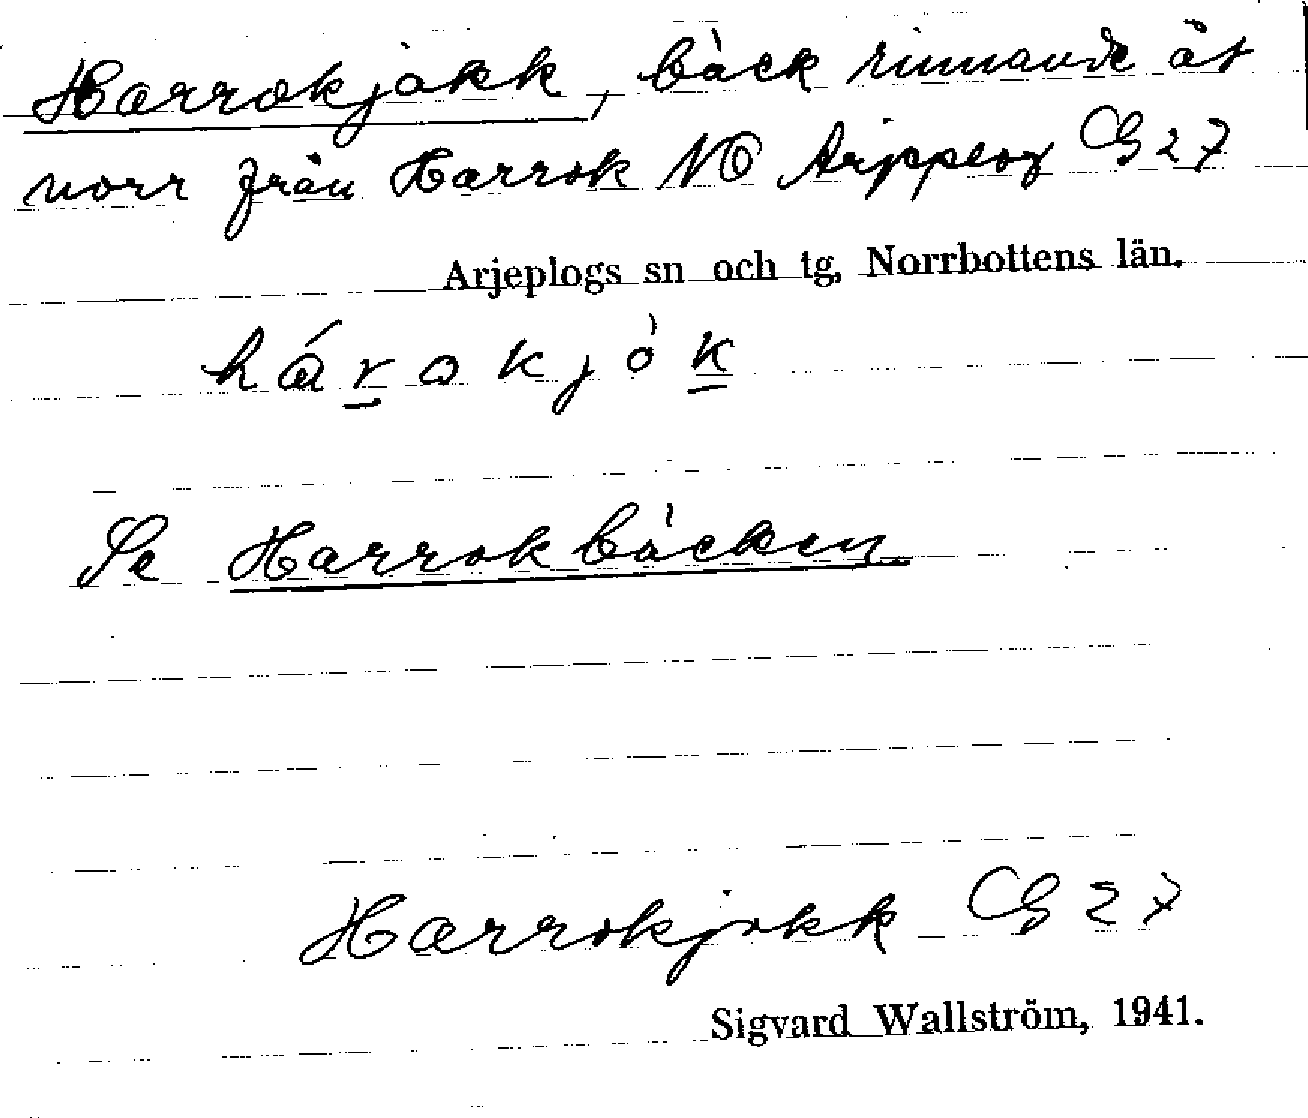 Harrokjåkk, bäck rinnande åt
norr från Harrok NO Arjeplog G 27
Arjeplogs sn och tg, Norrbottens län.
hárokjòk
Se Harrokbäcken.
Harrokjokk G 27
Sigvard Wallström, 1941.